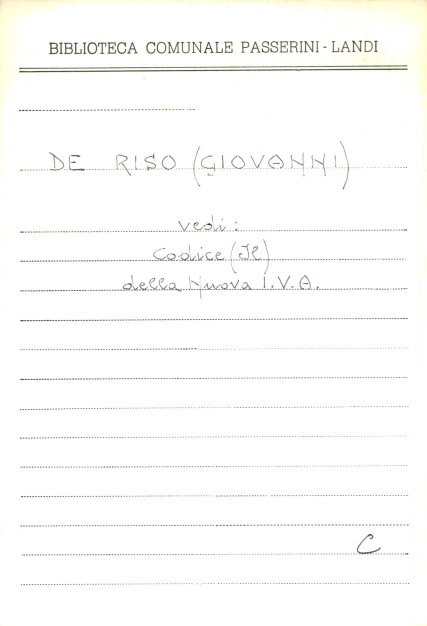 BIBLIOTECA COMUNALE PASSERINI-LANDI
DE RISO (GIOVANNI)
vedi:
Codice (Il)
della Nuova I.V.A.
C